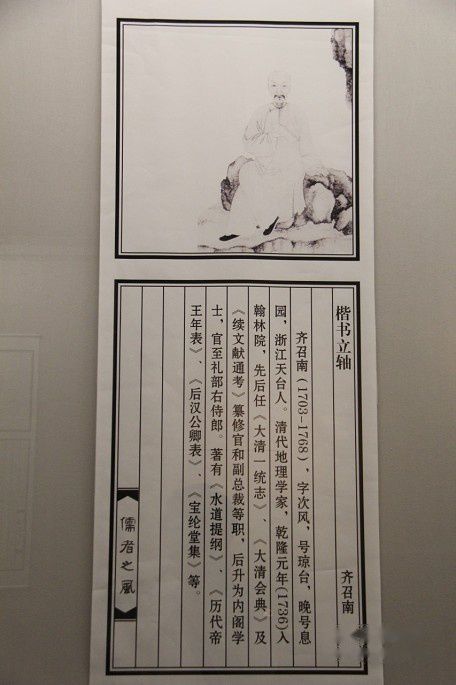 楷书立轴
齐召南
齐召南（1703-1768），字次风，号琼台，晚号息
园，浙江天台人。清代地理学家，乾隆元年(1736)入
翰林院，先后任《大清一统志》、《大清会典》及
《续文献通考》纂修官和副总裁等职，后升为内阁学
士，官至礼部右侍郎。著有《水道提纲》、《历代帝
王年表》、《后汉公卿表》、《宝纶堂集》等。
儒者之风